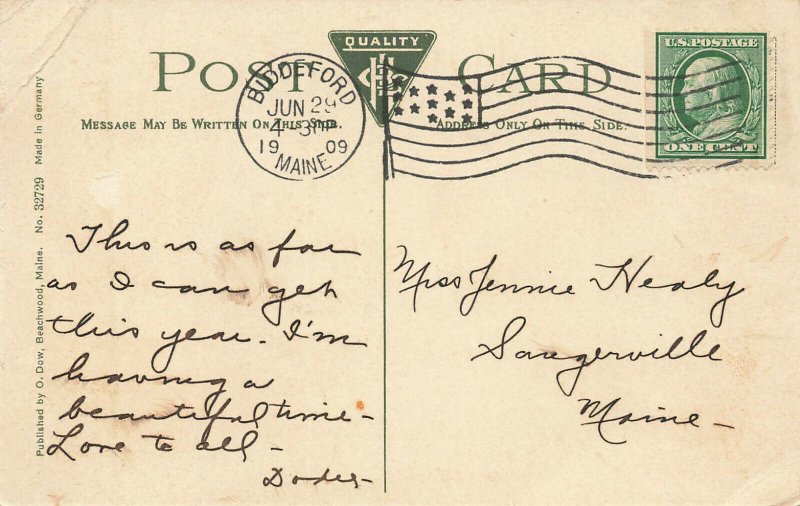 QUALITY
POST CARD
MESSAGE MAY BE WRITTEN ON THIS SIDE.
ADDRESS ONLY ON THIS SIDE.
BIDDEFORD
JUN 29
4 30 P
1909
MAINE
U.S. POSTAGE
ONE CENT
This is as far
as I can get
this year. I'm
having a
beautiful time-
Love to all-
Miss Jennie Healy
Sangerville
Maine-
Published by O. Dow, Beachwood, Maine. No. 32729 Made in Germany